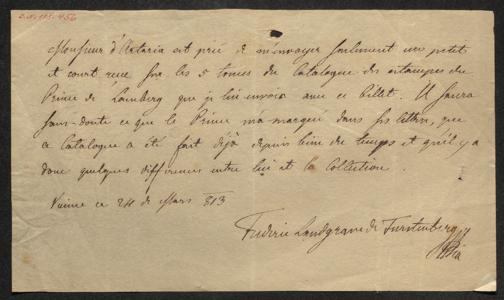 Monsieur d'Artaria est prié de m'envoyer seulement un petit
et court reçu sur les 5 tomes du Catalogue des estampes du
Prince de que je lui envois avec ce billet. Il saura
sans-doute ce que le Prince m'a marqué dans ses lettres, que
ce Catalogue a été fait déjà depuis bien du temps et qu'il y a
donc quelques differences entre lui et la Collection.
Vienne ce 24 de Mars 813
Frederic Landgrave de Furstenberg